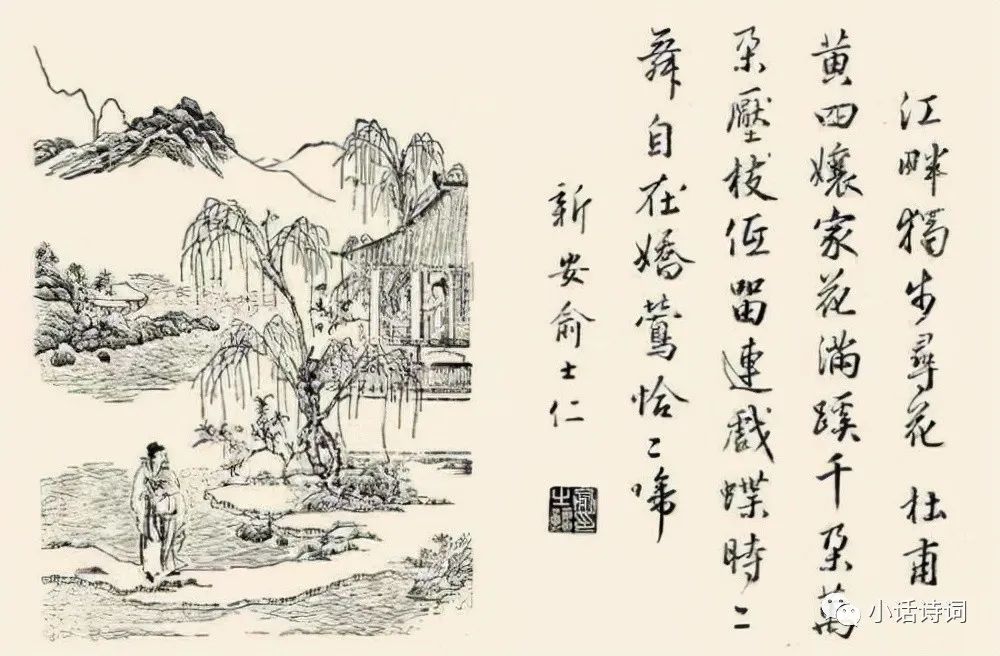 江畔獨步尋花 杜甫
黄四孃家花滿蹊千朵萬
朵壓枝低留連戲蝶時〻
舞自在嬌鶯恰〻啼
新安俞士仁
小话诗词